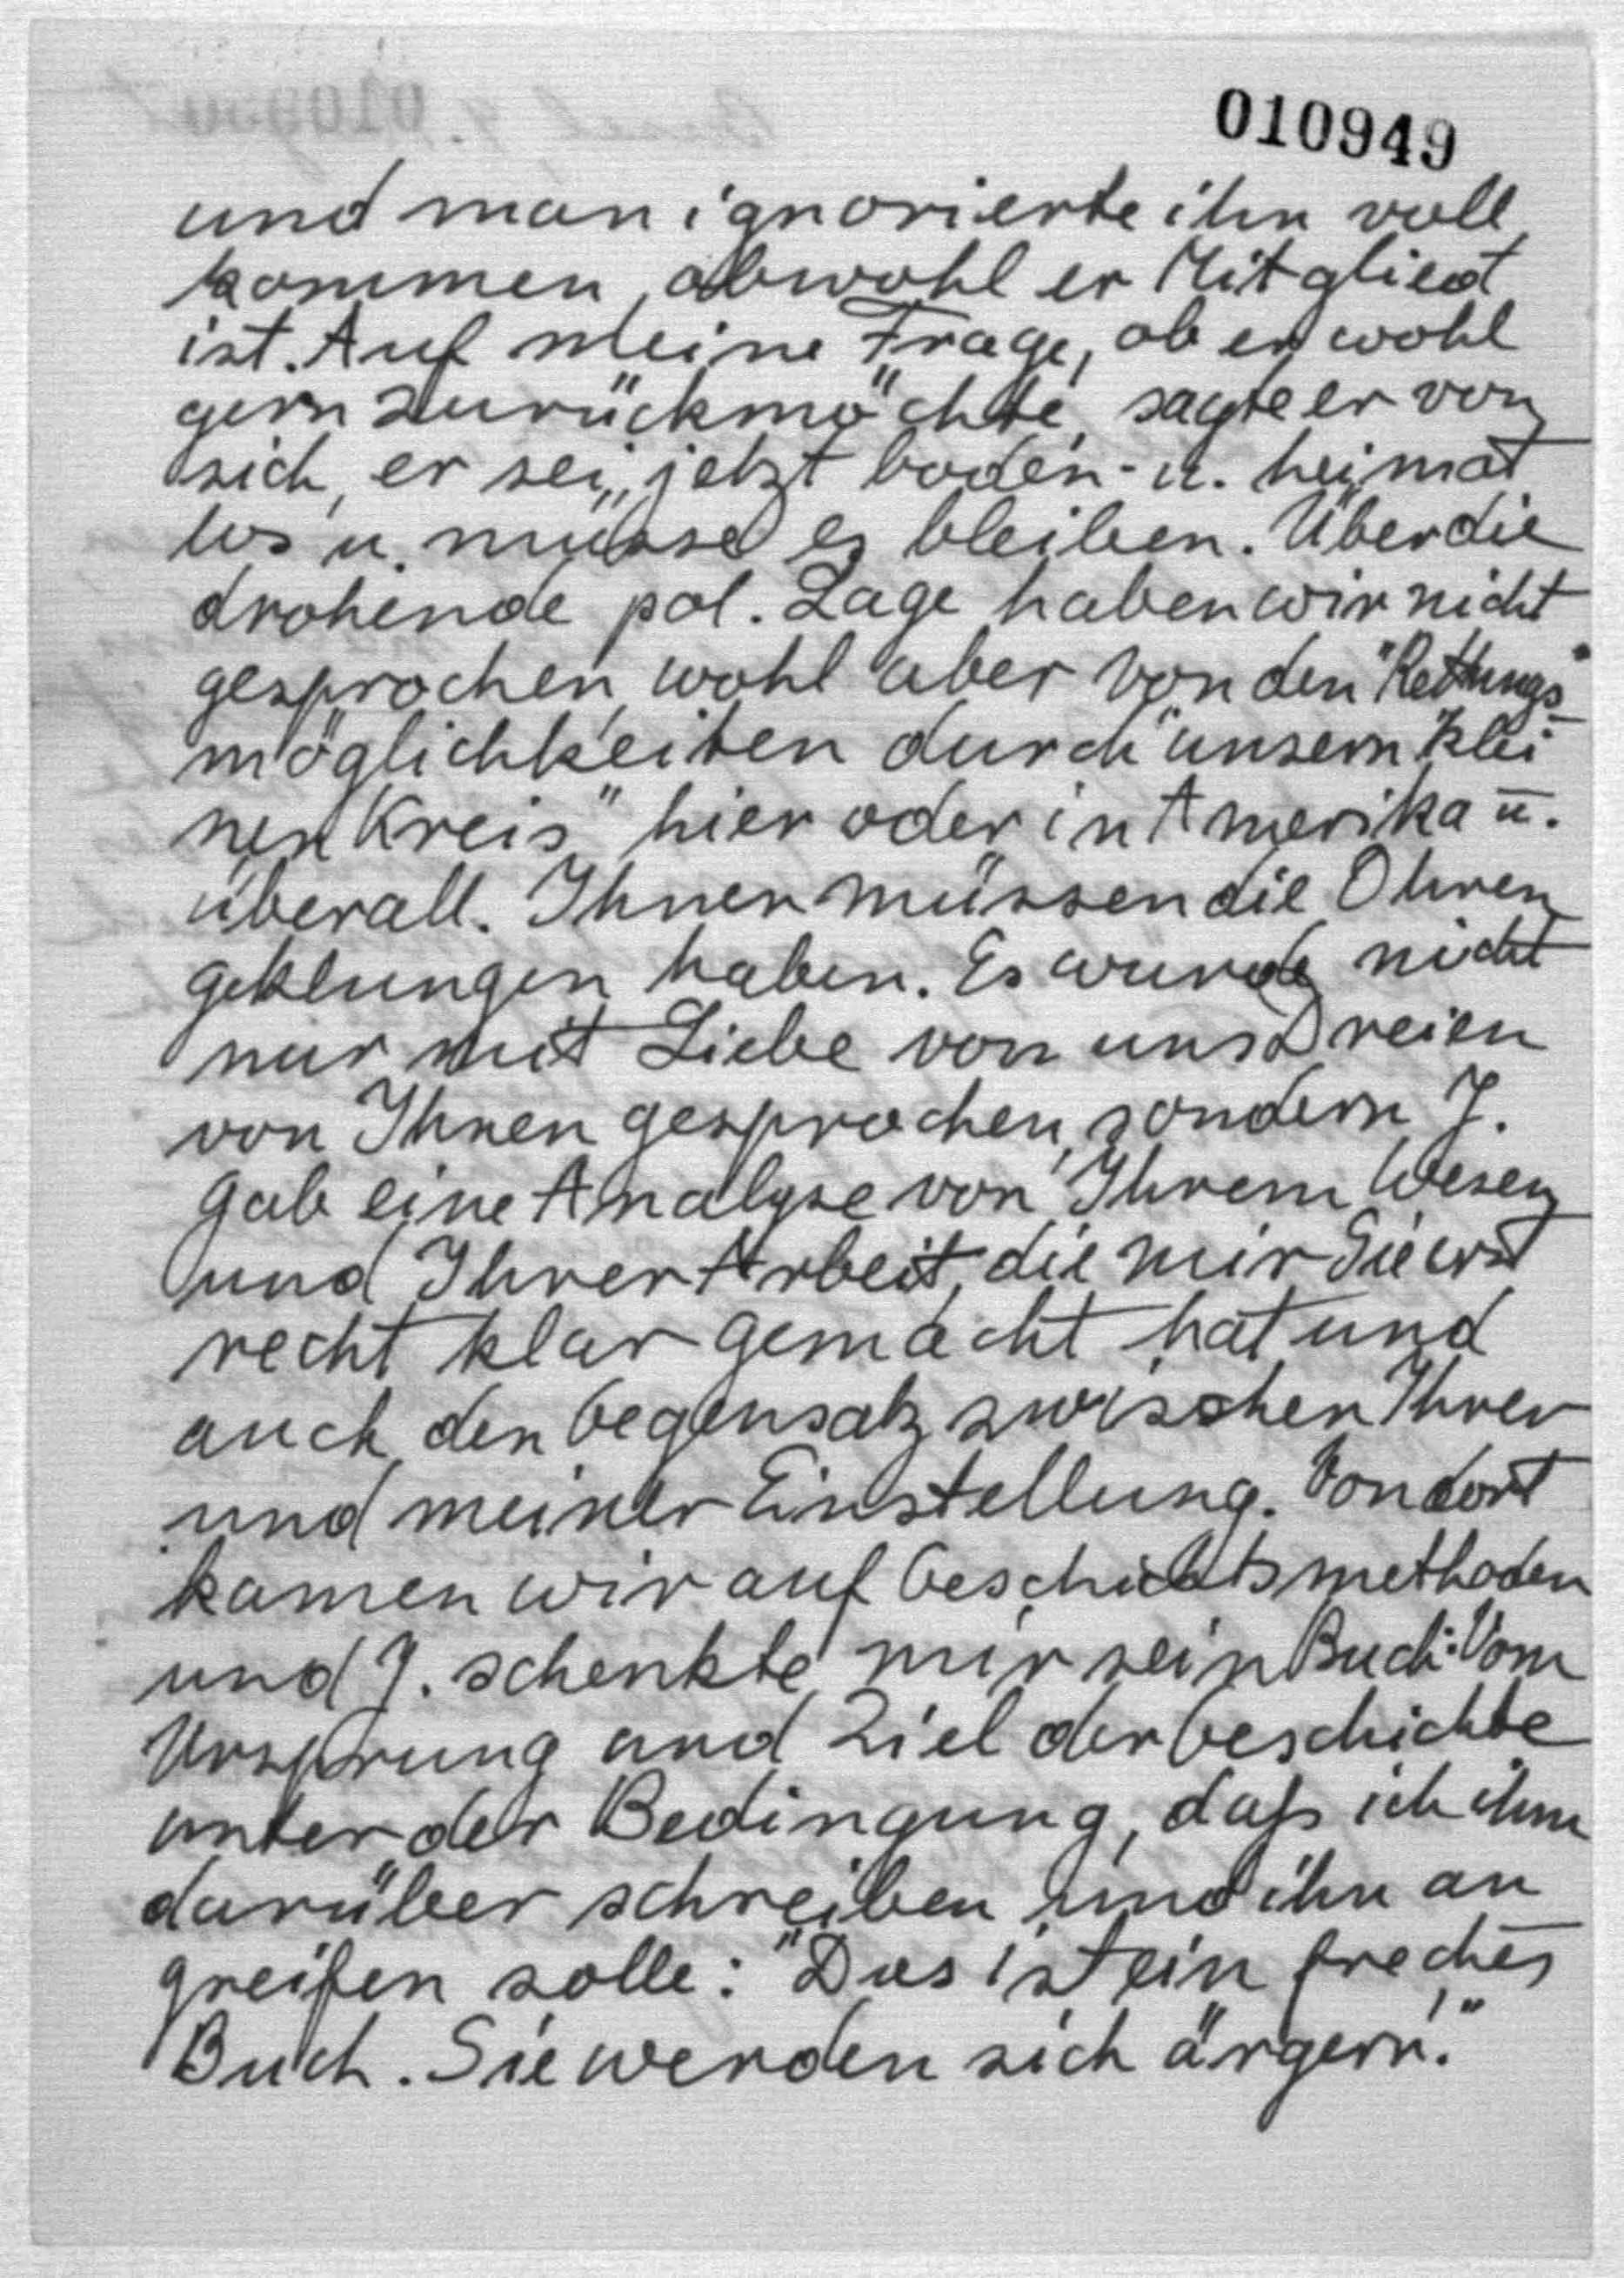 010949
und man ignorierte ihn voll
kommen, obwohl er Mitglied
ist. Auf meine Frage, ob er wohl
gern "zurückmöchte", sagte er von
sich, er sei „jetzt boden- u. heimat
los" u. müsse es bleiben. Über die
drohende pol. Lage haben wir nicht
gesprochen, wohl aber von den "Rettungs"
möglichkeiten durch "unsern klei
nen Kreis" hier oder in Amerika u.
überall. Ihnen müssen die Ohren
geklungen haben. Es wurde nicht
nur mit Liebe von uns Dreien
von Ihnen gesprochen, sondern J.
gab eine Analyse von Ihrem Wesen
und Ihrer Arbeit, die mir Sie erst
recht klar gemacht hat und
auch den Gegensatz zwischen Ihrer
und meiner Einstellung. Von dort
kamen wir auf Geschichtsmethoden
und J. schenkte mir sein Buch: Vom
Ursprung und Ziel der Geschichte
unter der Bedingung, daß ich ihm
darüber schreiben und ihn an
greifen solle: "Das ist ein freches
Buch. Sie werden sich ärgern!"